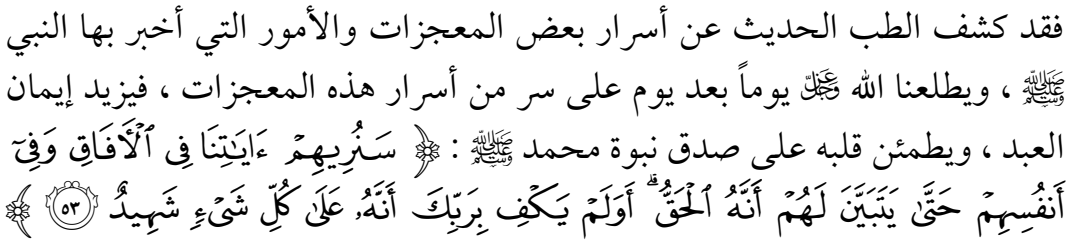 فقد كشف الطب الحديث عن أسرار بعض المعجزات والأمور التي أخبر بها النبي
ﷺ ، ويطلعنا الله ﷿ يوماً بعد يوم على سر من أسرار هذه المعجزات ، فيزيد إيمان
العبد ، ويطمئن قلبه على صدق نبوة محمد ﷺ : ﴿ سَنُرِيهِمْ ءَايَٰتِنَا فِى ٱلْأَفَاقِ وَفِىٓ
أَنفُسِهِمْ حَتَّىٰ يَتَبَيَّنَ لَهُمْ أَنَّهُ ٱلْحَقُّ ۗ أَوَلَمْ يَكْفِ بِرَبِّكَ أَنَّهُۥ عَلَىٰ كُلِّ شَىْءٍ شَهِيدٌ ۝٥٣ ﴾